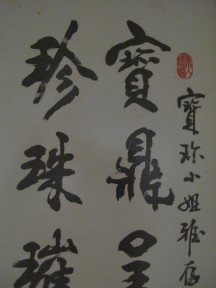 寶珍小姐雅存
寶鼎呈
珍珠璀